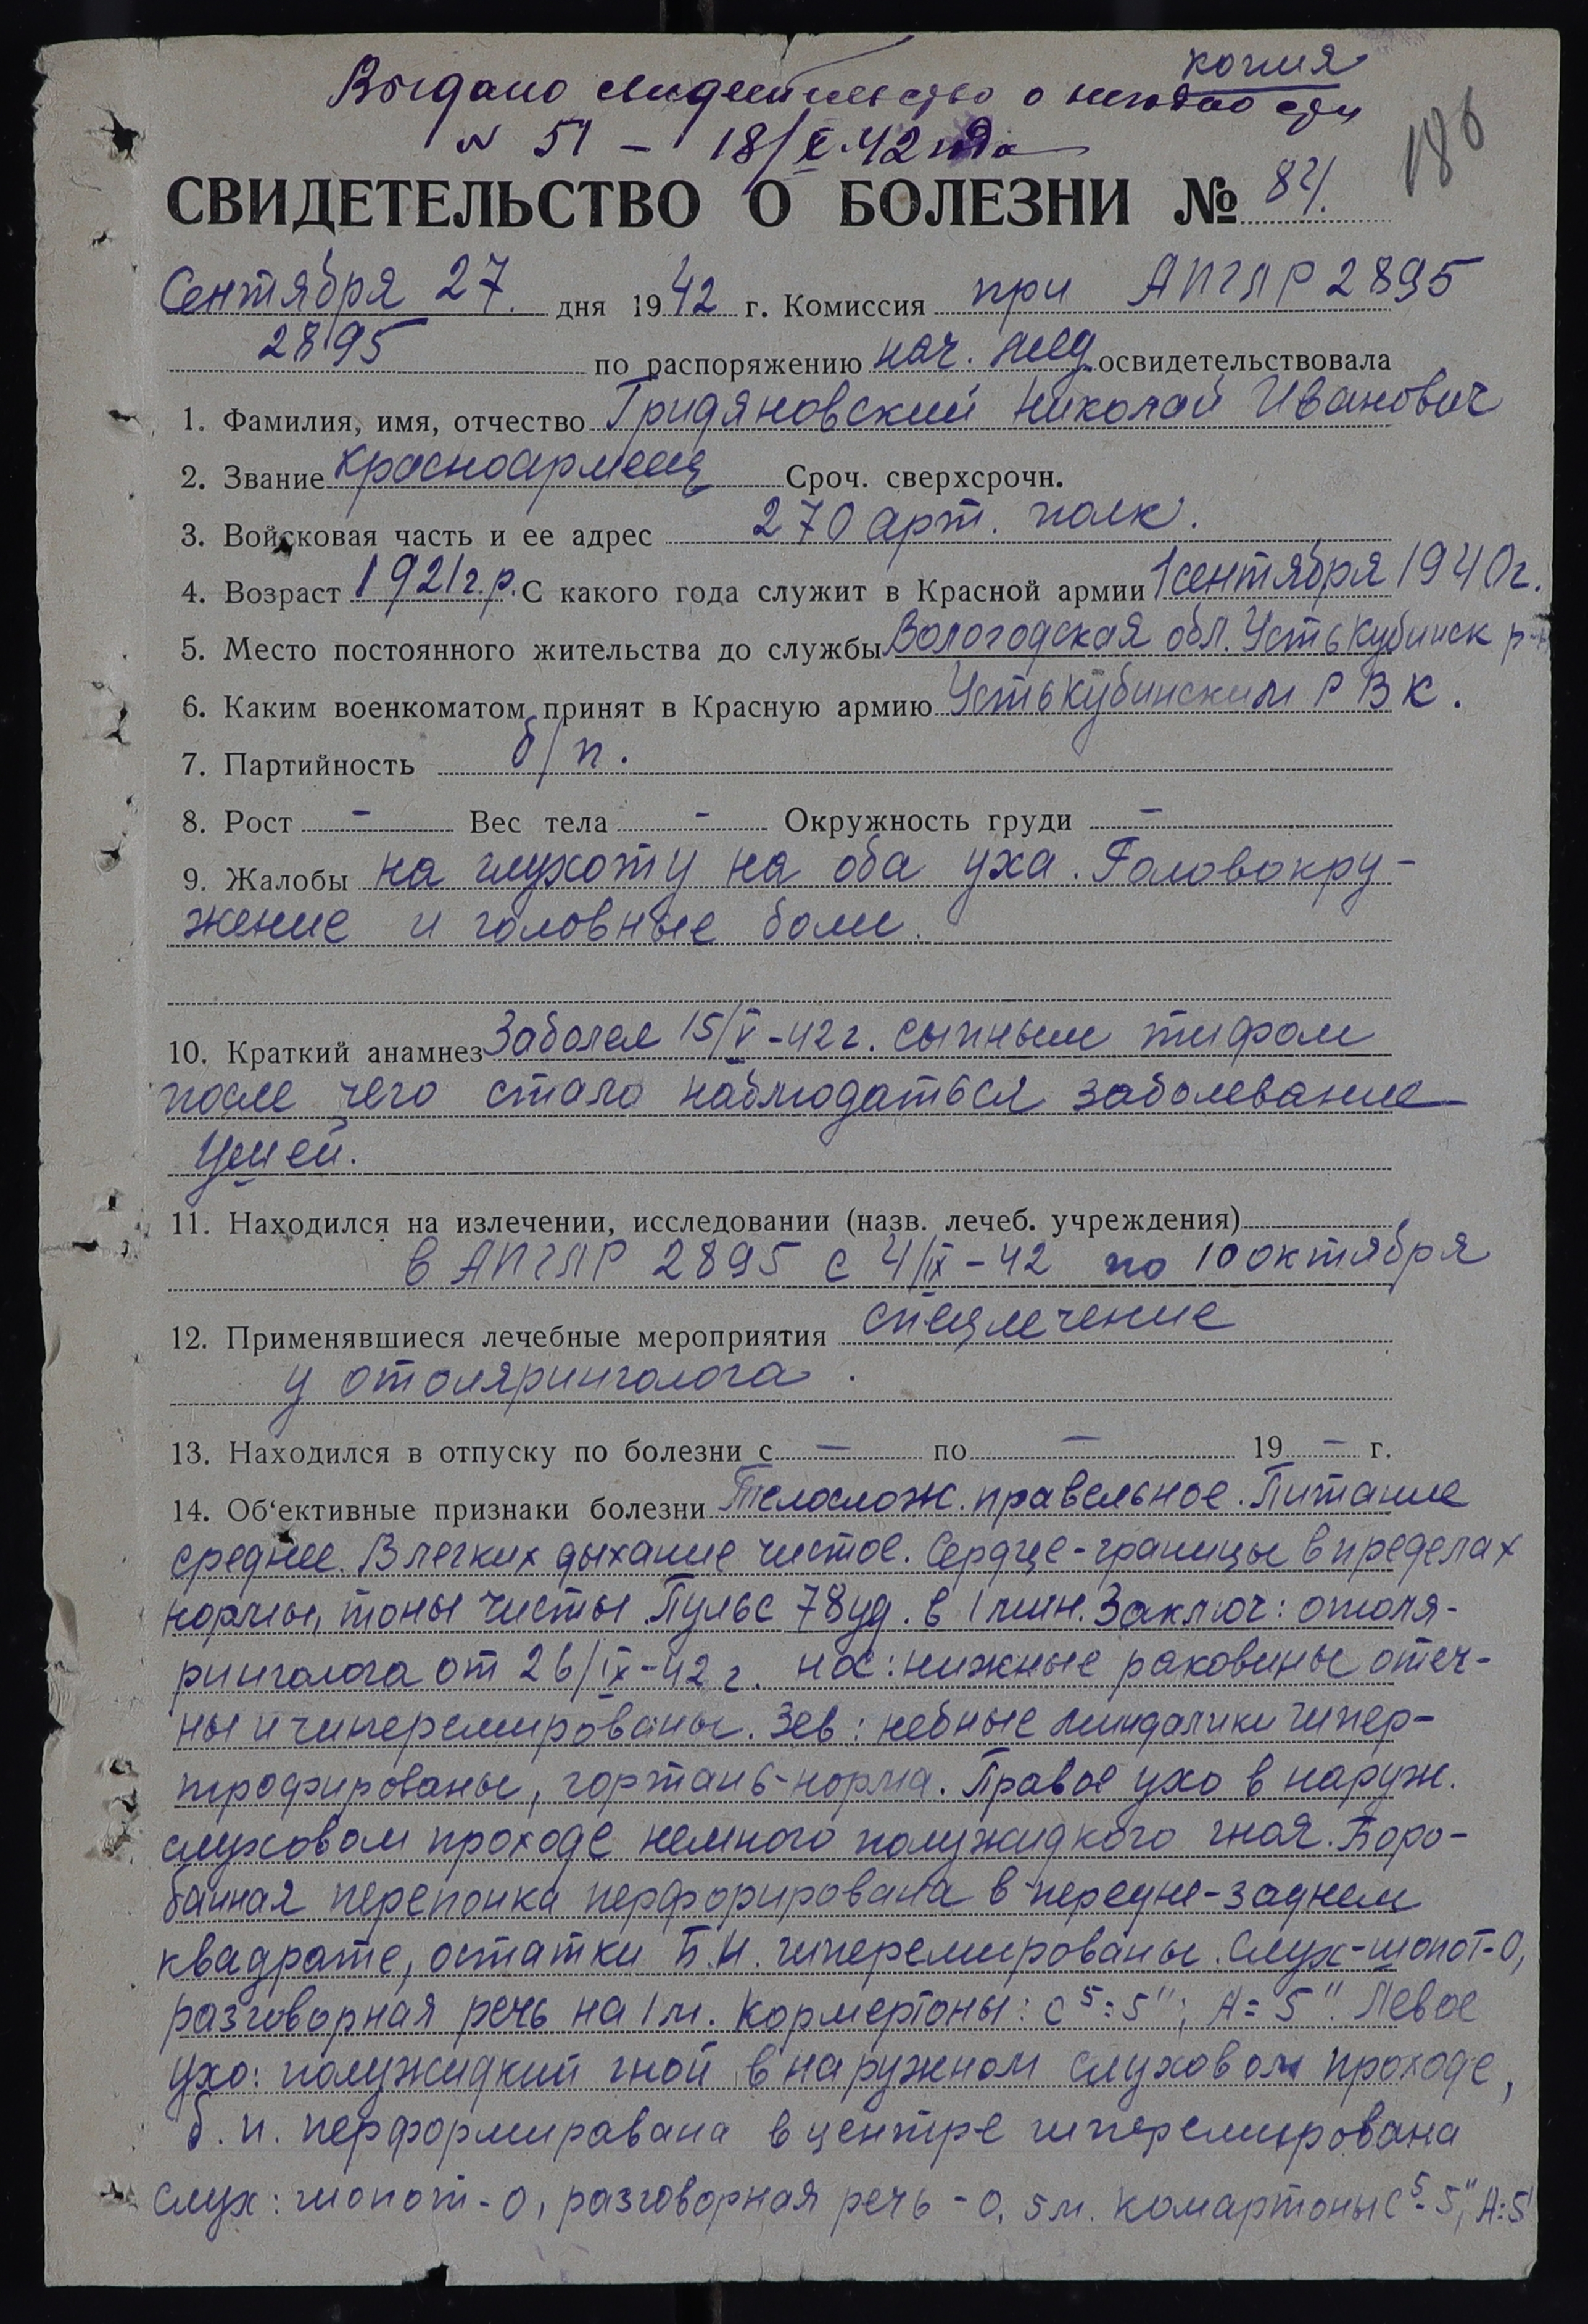 копия
Выдано свидетельство о негодности
N 51 – 18/X.42 года
186
СВИДЕТЕЛЬСТВО О БОЛЕЗНИ № 84.
Сентября 27. дня 1942 г. Комиссия при АПГЛР 2895
2895 по распоряжению нач. мед освидетельствовала
1. Фамилия, имя, отчество Гридяновский Николай Иванович
2. Звание красноармеец Сроч. сверхсрочн.
3. Войсковая часть и ее адрес 270 арт. полк.
4. Возраст 1921 г.р. С какого года служит в Красной армии 1 сентября 1940г.
5. Место постоянного жительства до службы Вологодская обл. Усть Кубинск р-н
6. Каким военкоматом принят в Красную армию Усть Кубинским РВК.
7. Партийность б/п.
8. Рост – Вес тела – Окружность груди –
9. Жалобы на глухоту на оба уха. Головокру-
жение и головные боли.
10. Краткий анамнез Заболел 15/V-42 г. сыпным тифом
после чего стало наблюдаться заболевание
ушей.
11. Находился на излечении, исследовании (назв. лечеб. учреждения)
в АПГЛР 2895 с 4/IX-42 по 10 октября
12. Применявшиеся лечебные мероприятия спецлечение
у отоляринголога.
13. Находился в отпуску по болезни с – по – 19 – г.
14. Об'ективные признаки болезни Телослож. правельное. Питание
среднее. В легких дыхание чистое. Сердце-границы в пределах
нормы, тоны чисты Пульс 78 уд. в 1 мин. Заключ: отоля-
ринголога от 26/IX-42 г. нос: нижные раковины отеч-
ны и гиперемированы. Зев: небные миндалики гипер-
трофированы, гортань-норма. Правое ухо в наруж.
слуховом проходе немного полужидкого гноя. Боро-
банная перепонка перфорирована в передне-заднем
квадрате, остатки Б.П. гиперемированы. Слух-шопот-0,
разговорная речь на 1 м. Кормертоны: С⁵=5"; А=5". Левое
ухо: полужидкий гной в наружном слуховом проходе,
б.п. перформиравана в центре гиперемирована
Слух: шопот-0, разговорная речь - 0,5 м. комартоны С⁵-5"; А=5"